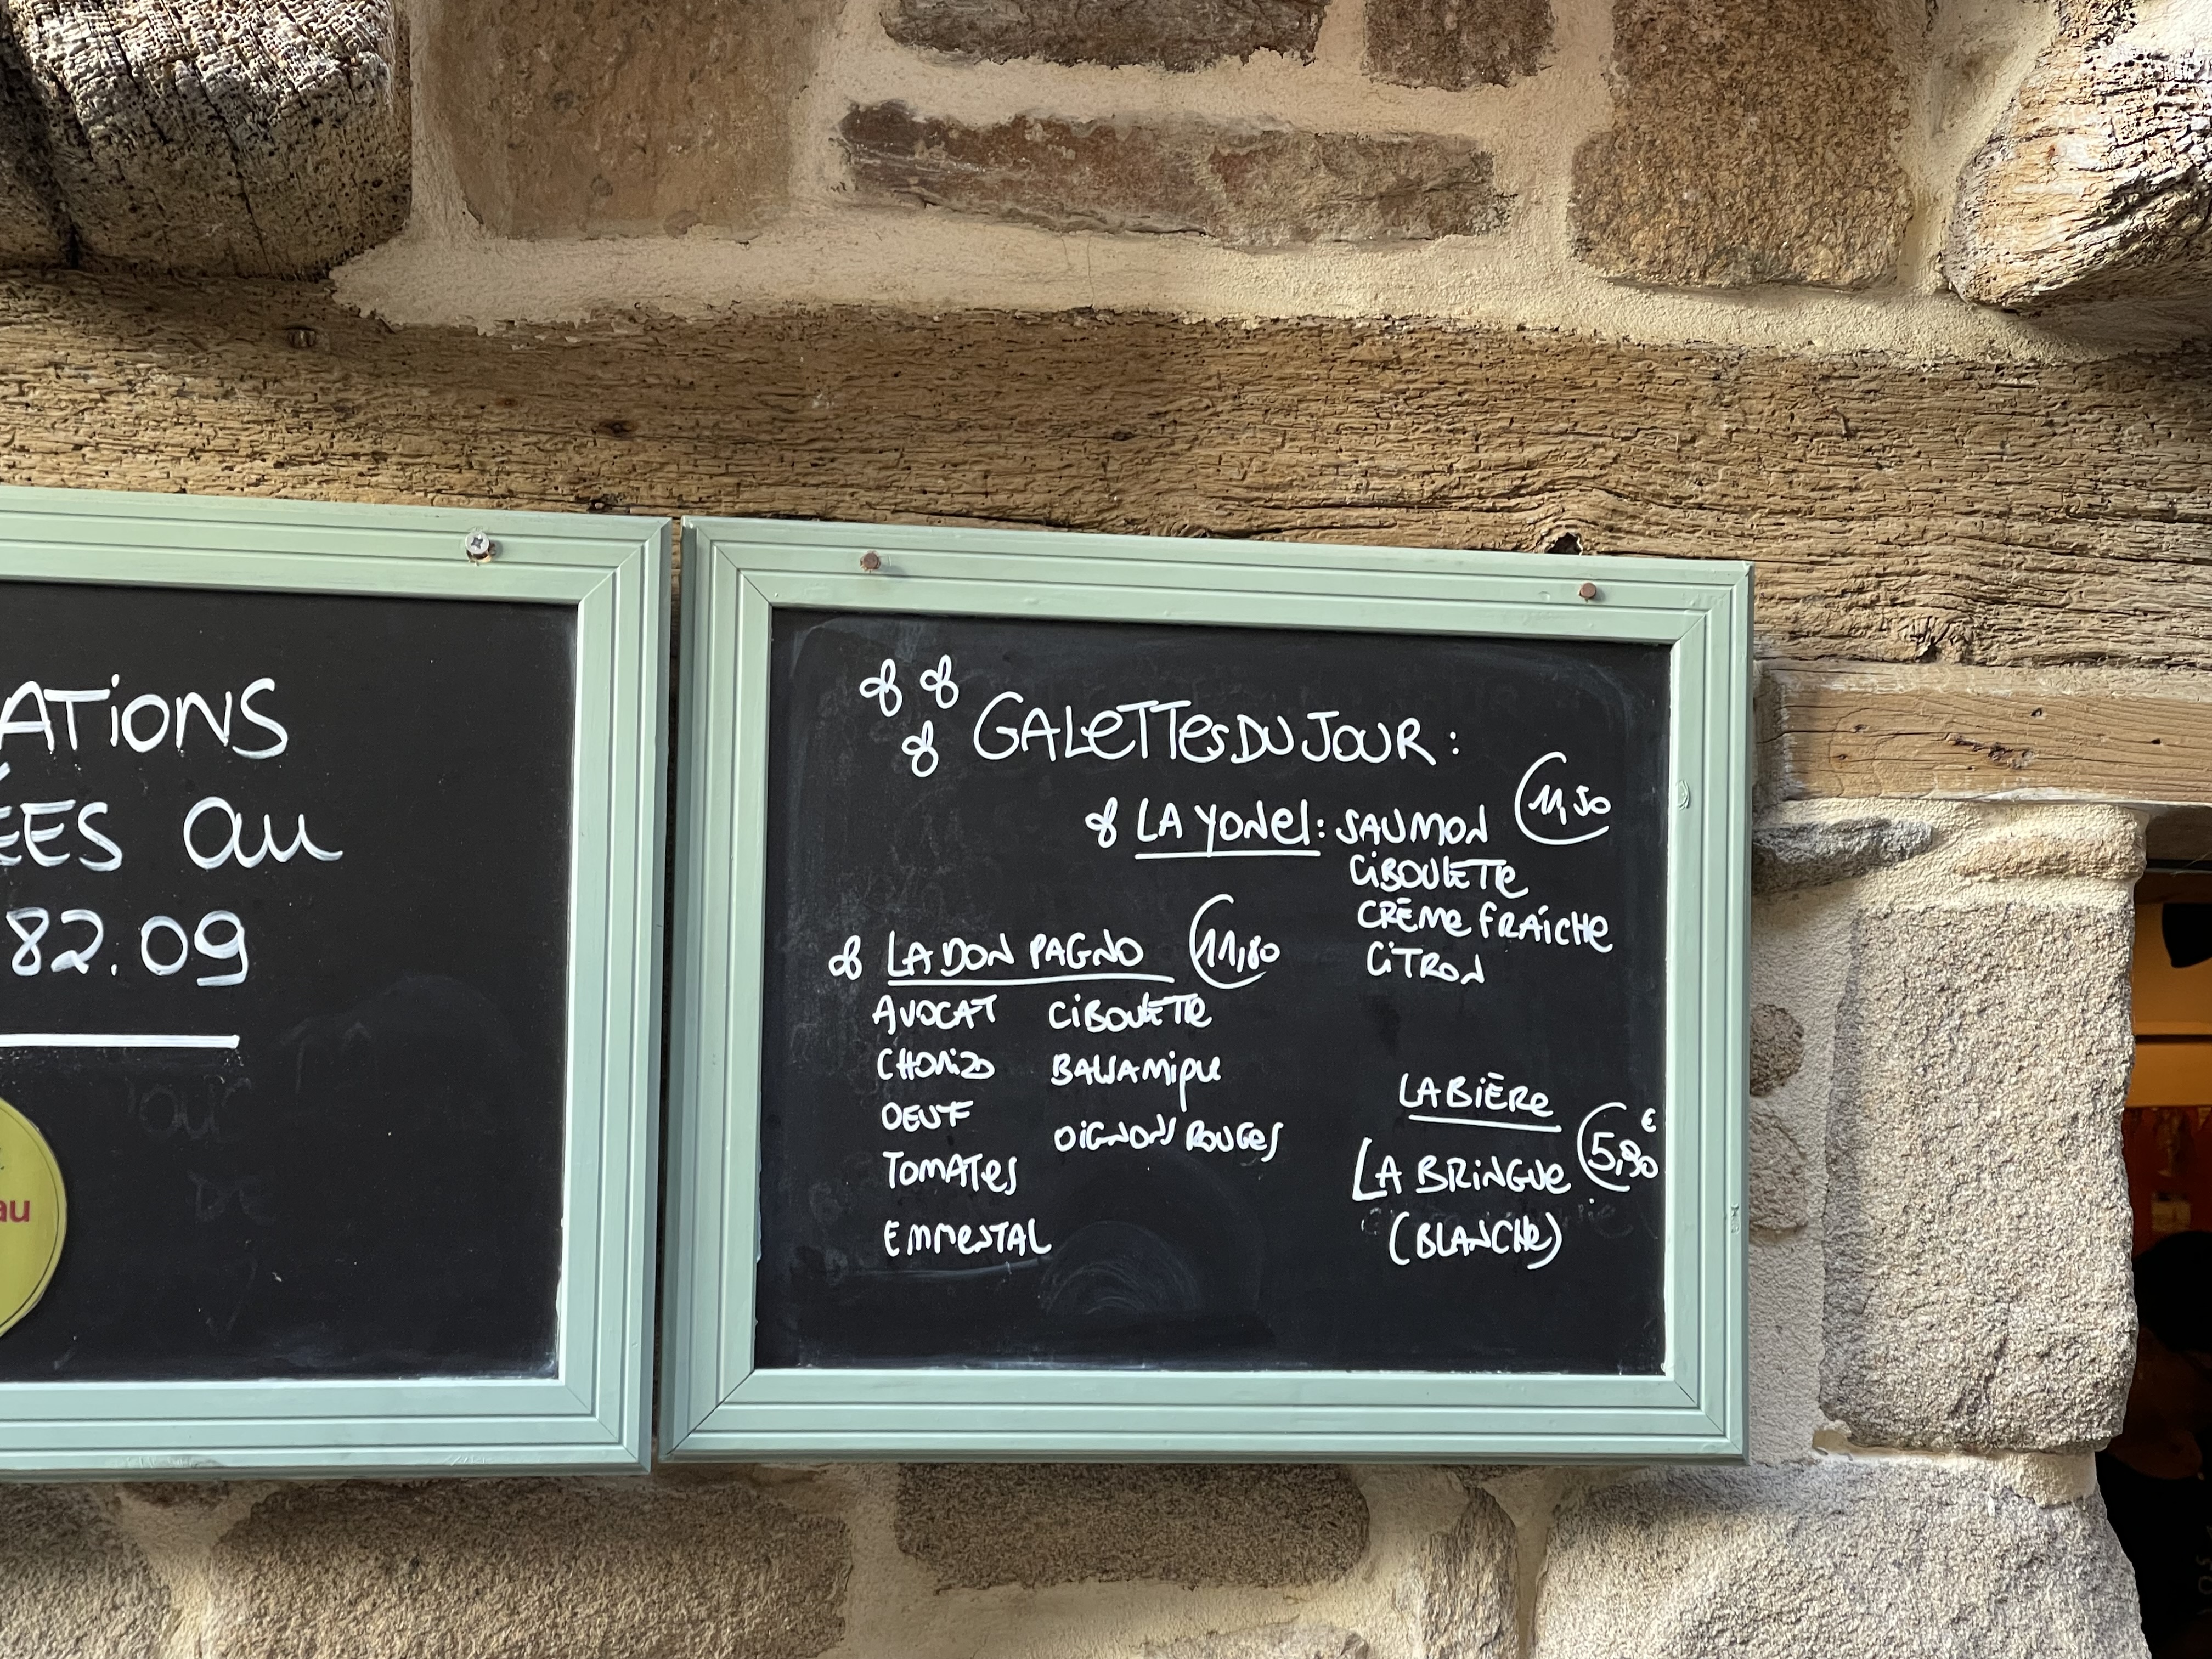 ATIONS
ÉES au
82.09
au
GALETTES DU JOUR :
LA YONEL : SAUMON 11,50
CIBOULETTE
CRÈME FRAÎCHE
CITRON
LA DON PAGNO 11,80
AVOCAT CIBOULETTE
CHORIZO BALSAMIQUE
OEUF
OIGNONS ROUGES
TOMATES
EMMENTAL
LA BIÈRE
LA BRINGUE 5,90€
(BLANCHE)